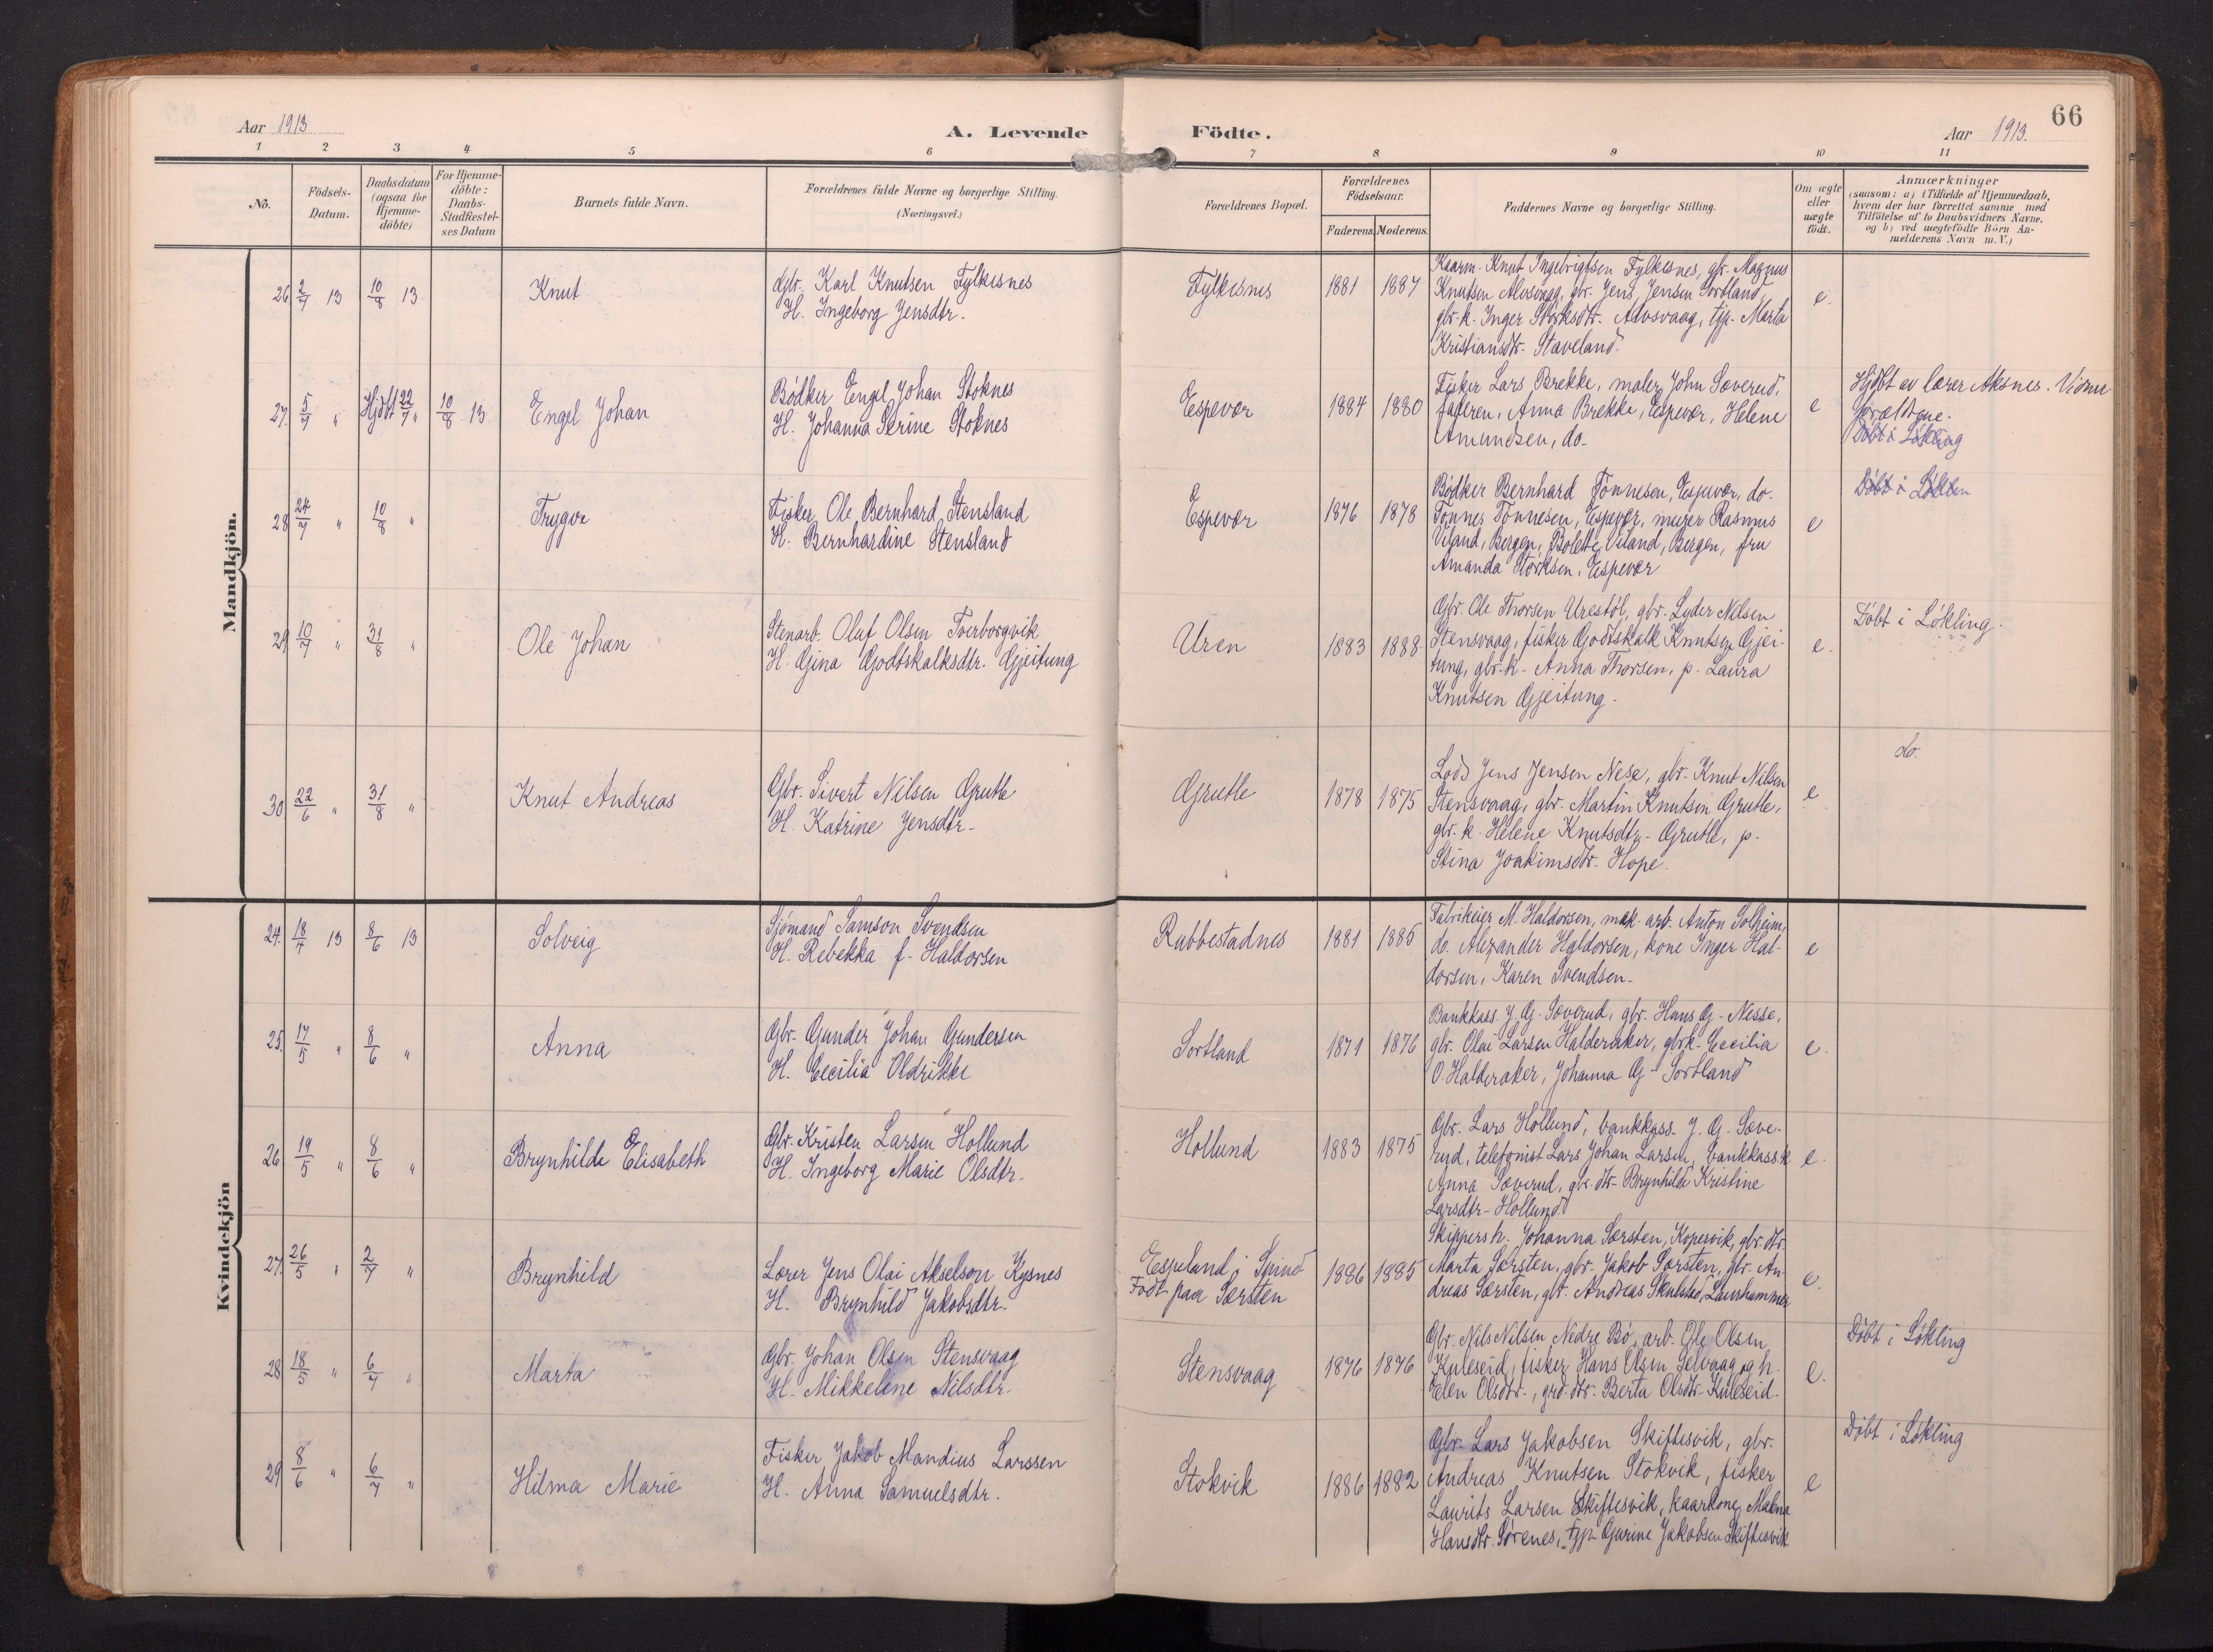 66
Aar 1913
A. Levende
Födte.
Aar 1913
1 2 3 4 5 6 7 8 9 10 11
No.
Födsels-Datum.
Daabsdatum (ogsaa for Hjemme-döbte)
For Hjemme-döbte: Daabs-Stadfæstel-ses Datum
Barnets fulde Navn.
Forældrenes fulde Navne og borgerlige Stilling.
(Næringsvei.)
Forældrenes Bopæl.
Forældrenes Födselsaar.
Faderens. Moderens.
Faddernes Navne og borgerlige Stilling.
Om ægte eller uægte födt.
Anmærkninger
(saasom: a) i Tilfælde af Hjemmedaab,
hvem der har forrettet samme med
Tilföielse af to Daabsvidners Navne,
og b) ved uægtefödte Börn An-
melderens Navn m. V.)
Mandkjön.
26 2/7 13 10/8 13
Knut
Gbr. Karl Knutsen Fylkesnes
H. Ingeborg Jensdtr.
Fylkesnes
1881 1887
Kaarm. Knut Ingebrigtsen Fylkesnes, gbr. Magnus
Knutsen Alvsvaag, gbr. Jens Jensen Sortland,
gbr.k. Inger Størksdtr. Alvsvaag, tjp. Marta
Kristiansdtr. Staveland.
e.
27. 5/7 " Hjdbt 22/7 " 10/8 13
Engel Johan
Bødker Engel Johan Stoknes
H. Johanna Serine Stoknes
Espevær
1884 1880
Fisker Lars Brekke, maler John Sæverud,
faderen, Anna Brekke, Espevær, Helene
Amundsen, do.
e
Hjdbt av lærer Aksnes. Vidne
forældrene.
Døbt i Løkling
28 24/7 " 10/8 "
Trygve
Fisker Ole Bernhard Stensland
H. Bernhardine Stensland
Espevær
1876 1878
Bødker Bernhard Tønnesen, Espevær, do.
Tønnes Tønnesen, Espevær, murer Rasmus
Viland, Bergen, Bolette Viland, Bergen, fru
Amanda Størksen, Espevær
e
Døbt i
29 10/7 " 31/8 "
Ole Johan
Stenarb. Oluf Olsen Tverborgvik
H. Gina Godtskalksdtr. Gjeitung
Uren
1883 1888
Gbr. Ole Thorsen Urestøl, gbr. Lyder Nilsen
Stensvaag, fisker Godtskalk Knutsen Gjei-
tung, gbr.k. Anna Thorsen, p. Laura
Knutsen Gjeitung.
e.
Døbt i Løkling.
30 22/6 " 31/8 "
Knut Andreas
Gbr. Sivert Nilsen Grutle
H. Katrine Jensdtr.
Grutle
1878 1875
Lods Jens Jensen Nese, gbr. Knut Nilsen
Stensvaag, gbr. Martin Knutsen Grutle,
gbr.k. Helene Knutsdtr. Grutle, p.
Stina Joakimsdtr. Hope.
e
do.
Kvindekjön
24. 18/4 13 8/6 13
Solveig
Sjømand Samson Svendsen
H. Rebekka f. Haldorsen
Rubbestadnes
1881 1885
Fabrikeier M. Haldorsen, mek. arb. Anton Solheim,
do. Alexander Haldorsen, kone Inger Hal-
dorsen, Karen Svendsen.
e
25. 17/5 " 8/6 "
Anna
Gbr. Gunder Johan Gundersen
H. Cecilia Oldrikke
Sortland
1871 1876
Bankkass. J. G. Sæverud, gbr. Hans G. Nesse,
gbr. Olai Larsen Halderaker, gbrk. Cecilia
O. Halderaker, Johanna G. Sortland
e.
26. 19/5 " 8/6 "
Brynhilde Elisabeth
Gbr. Kristen Larsen Hollund
H. Ingeborg Marie Olsdtr.
Hollund
1883 1875
Gbr. Lars Hollund, bankkass. J. G. Sæve-
rud, telefonist Lars Johan Larsen, bankkass.k
Anna Sæverud, gbr. dtr. Brynhilde Kristine
Larsdtr. Hollund
e.
27. 26/5 " 2/7 "
Brynhild
Lærer Jens Olai Akselson Kysnes
H. Brynhild Jakobsdtr.
Espeland i Spind
Født paa Særsten
1886 1885
Skippersh. Johanna Særsten, Kopervik, gbr. dtr.
Marta Særsten, gbr. Jakob Særsten, gbr. An-
dreas Særsten, gbr. Andreas
e.
28 18/5 " 6/7 "
Marta
Gbr. Johan Olsen Stensvaag
H. Mikkeline Nilsdtr.
Stensvaag
1876 1876
Gbr. Nils Nilsen Nedre Bø, arb. Ole Olsen
Kuleseid, fisker Hans Olsen Selvaag og h.
Elen Olsdtr., grd. dtr. Berta Olsdtr. Kuleseid.
e.
Døbt i Løkling
29 8/6 " 6/7 "
Hilma Marie
Fisker Jakob Mandius Larssen
H. Anna Samuelsdtr.
Stokvik
1886 1882
Gbr. Lars Jakobsen Skiftesvik, gbr.
Andreas Knutsen Stokvik, fisker
Laurits Larsen Skiftesvik, kaarkone Malena
Hansdtr. Sørenes, tjp. Gurine Jakobsen Skiftesvik
e
Døbt i Løkling